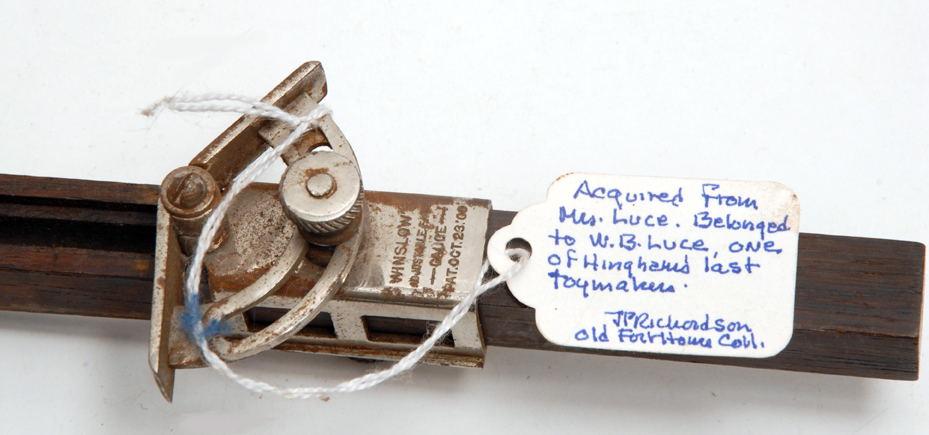 WINSLOW
ADJUSTABLE
—GAUGE—
PAT.OCT.23.'06
Acquired from
Mrs. Luce. Belonged
to W.B. Luce, one
of Hinghams last
toymakers.
JPRichardson
Old Fort House Coll.